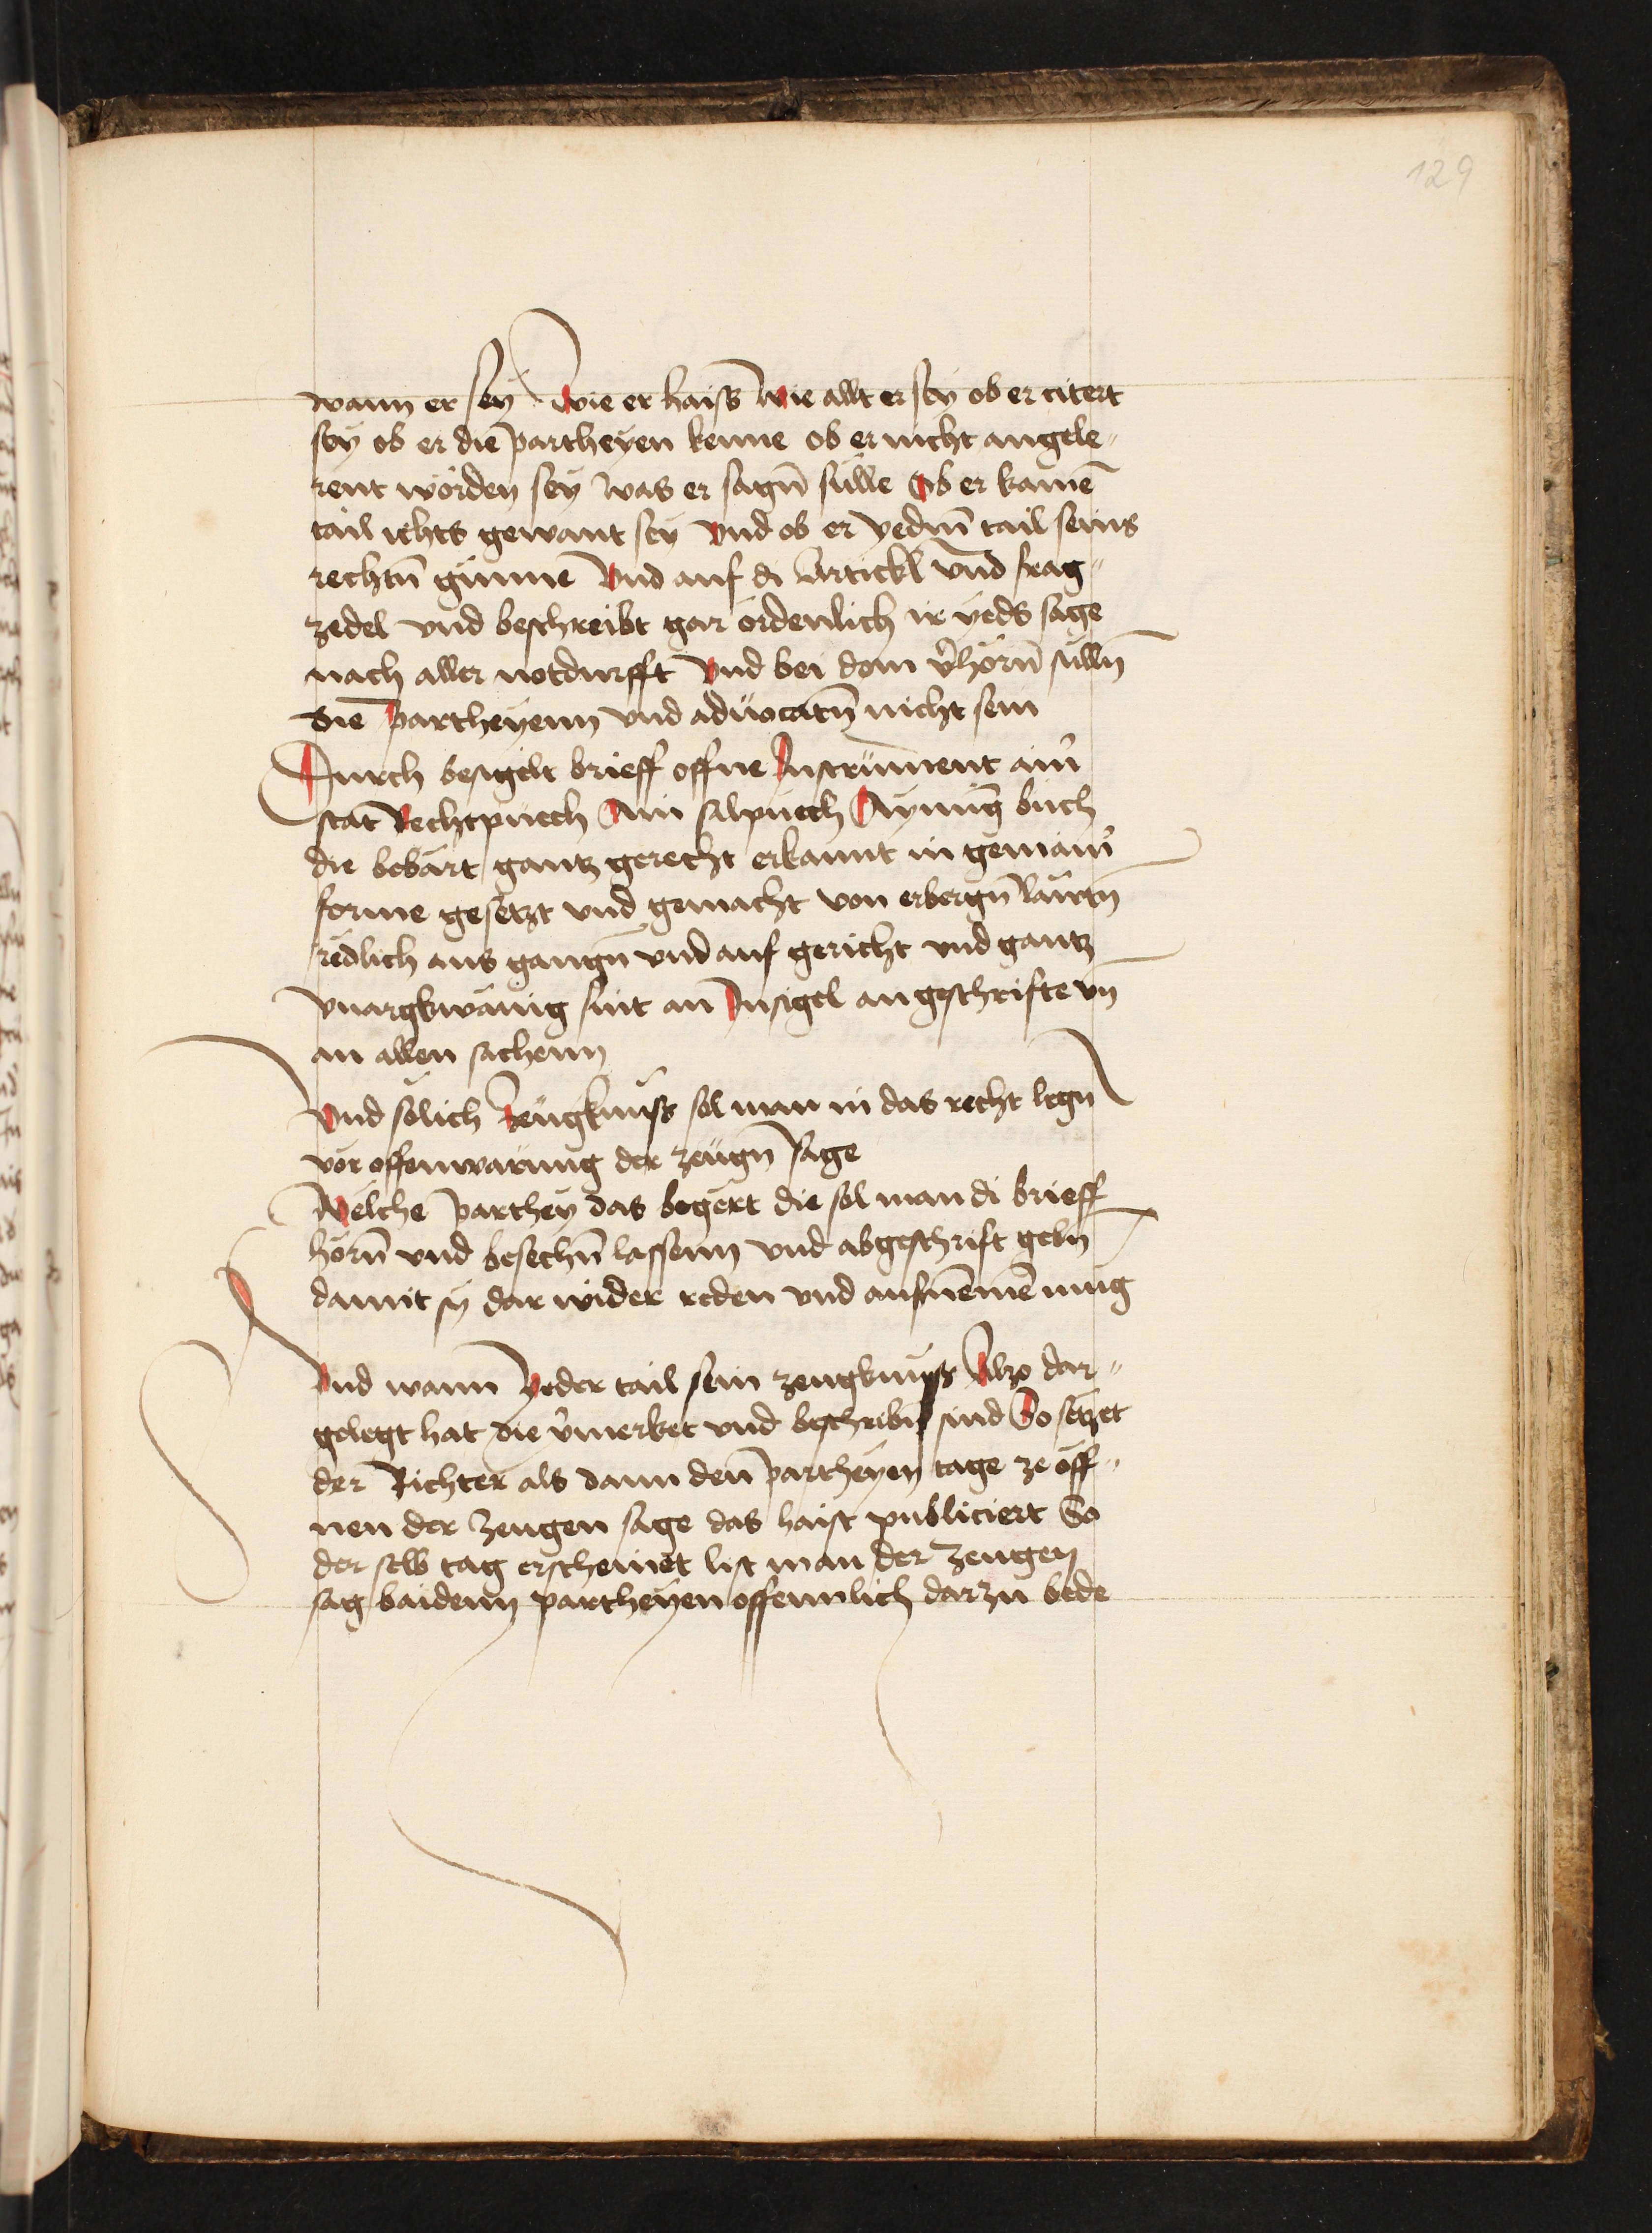 129
wann er seÿ Wie er haiss Wie allt er seÿ ob er citert
seÿ ob er die partheÿen kenne ob er nicht angele„
rent wörden seÿ Was er sagn̄ sülle Ob er kainē
tail ichts gewant seÿ Vnd ob er yedm̄ tail seins
rechtn̄ günne Vnd auf di Artickl vnd frag„
zedel vnd beschreibt gar ördenlich ir ÿeds sage
nach aller notdurfft Vnd bei dem v̉hörn̄ sülln̄
die partheÿenn vnd aduocatn̄ nicht sein
Durch besigelt brieff offne Instrüment ain̉
stat Rechtpüech Ain salpüech Aÿnüng büch
die bebärt gantz gerecht erkannt in gemain̉
forme gesëtzt vnd gemacht von erbergn̄ läwtn̄
rëdlich aus gangn̄ vnd auf gericht vnd gantz
vnargkwänig sint an Insigel an geschrifte vn̄
an allen sachenn
Vnd sölich Zeügknüss sol man in das recht legn̄
vör offenwarüng der zeügn̄ sage
Welche parthey das begert die sol man di brieff
hörn̄ vnd besechn̄ lassenn vnd abgeschrift gebn̄
damit sÿ dar wider reden vnd aufnēmē müg
Vnd wann Yeder tail sein zeugknuss Also dar„
gelegt hat die v̉merket vnd beschribn̄ sind So setzet
der Richter als dann den partheÿen tage ze öff„
nen der Zeugen sage das haist publiciert So
der selb tag erscheinet list man der Zeugen
sag baidenn partheÿen offennlich darzu bede